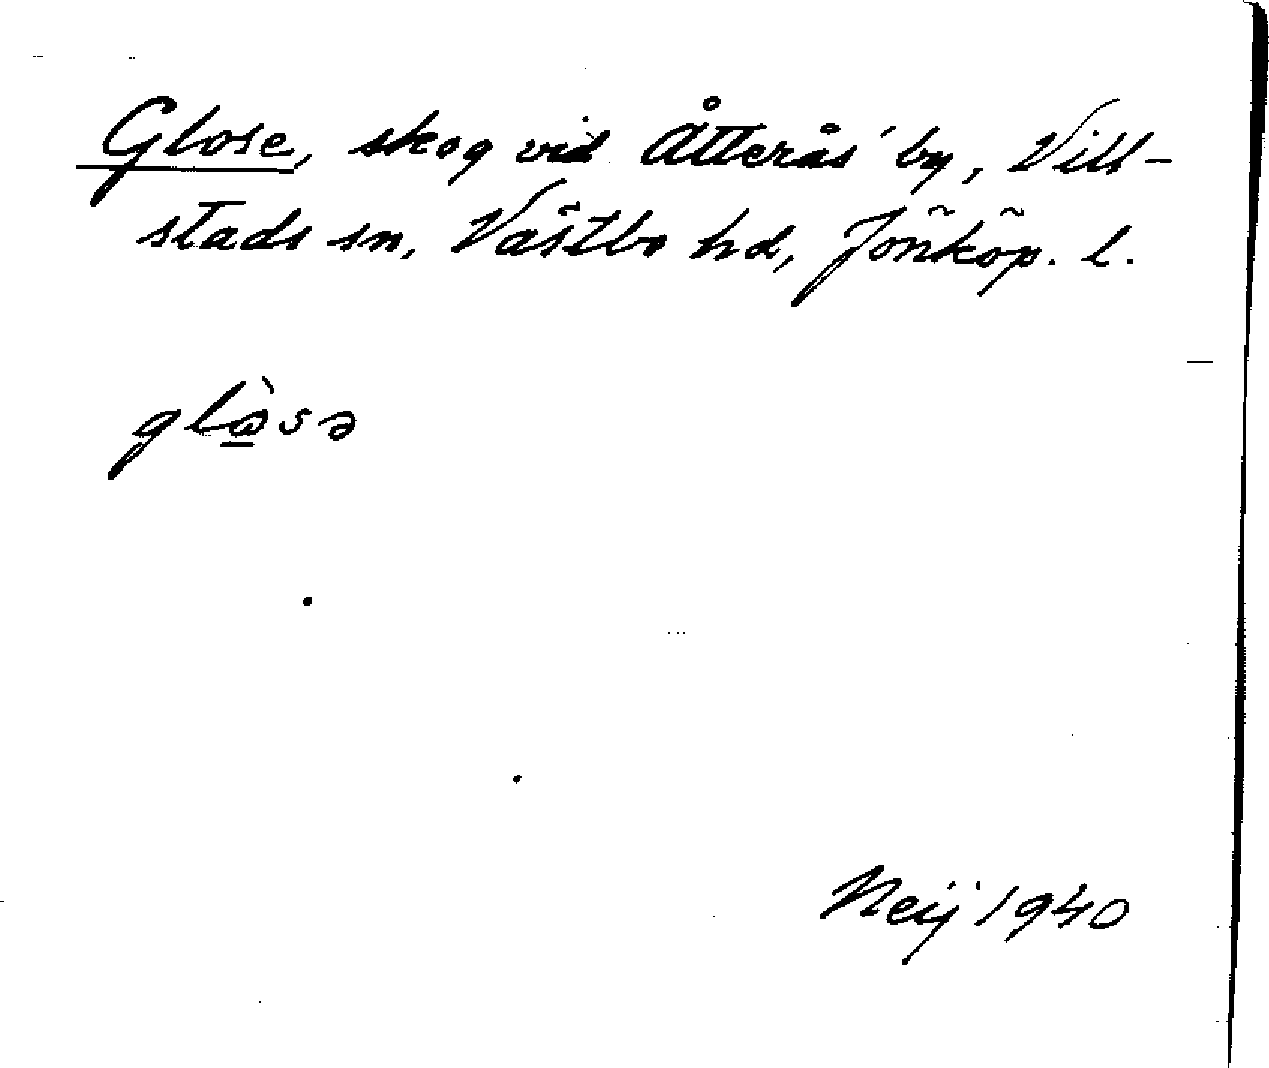 Glose, skog vid Åtterås by, Vill-
stads sn, Västbo hd, Jönköp. l.
glò̲sə
Neij 1940